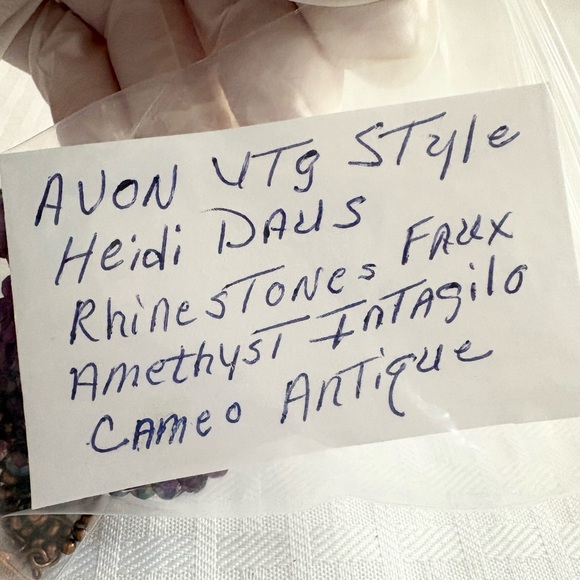 AVON VTg STyle
Heidi DAUS
RhinesTones FAUX
AmethysT InTAgilo
CAMeo AnTique